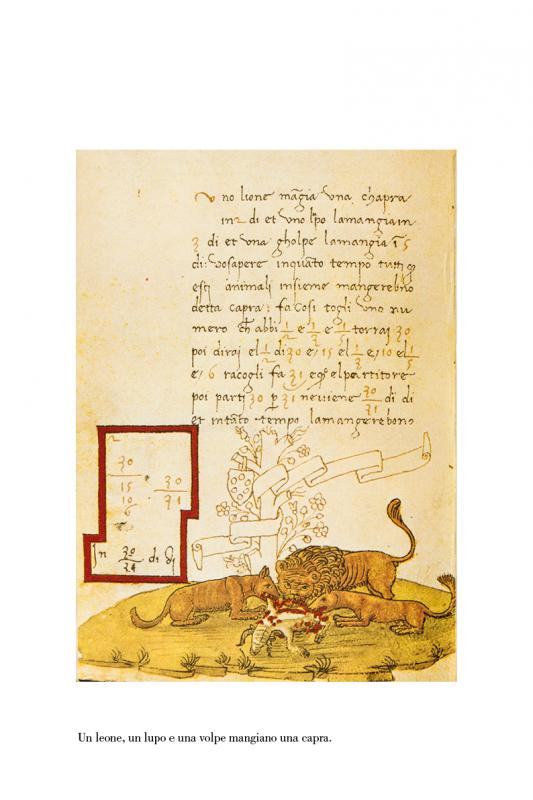 Vno lione māgia vna chapra
in 2 di et vno lpo lamangia in
3 di et vna gholpe lamangia ī 5
di: vosapere inquāto tempo tutti q̄
esti animali insieme mangerebno
detta capra: fa cosi togli vno nu
mero ch abbi 1/2 e 1/3 e 1/5 torrai 30
poi dirai el 1/2 di 30 e/ 15 el 1/3 e/ 10 el 1/5
e/ 6 racogli fa 31 elpartitore
poi parti 30 p 31 neviene 30/31 di di
et intāto tempo lamangerebono
2
30
15
10
6
30
31
In 30/31 di di
Un leone, un lupo e una volpe mangiano una capra.